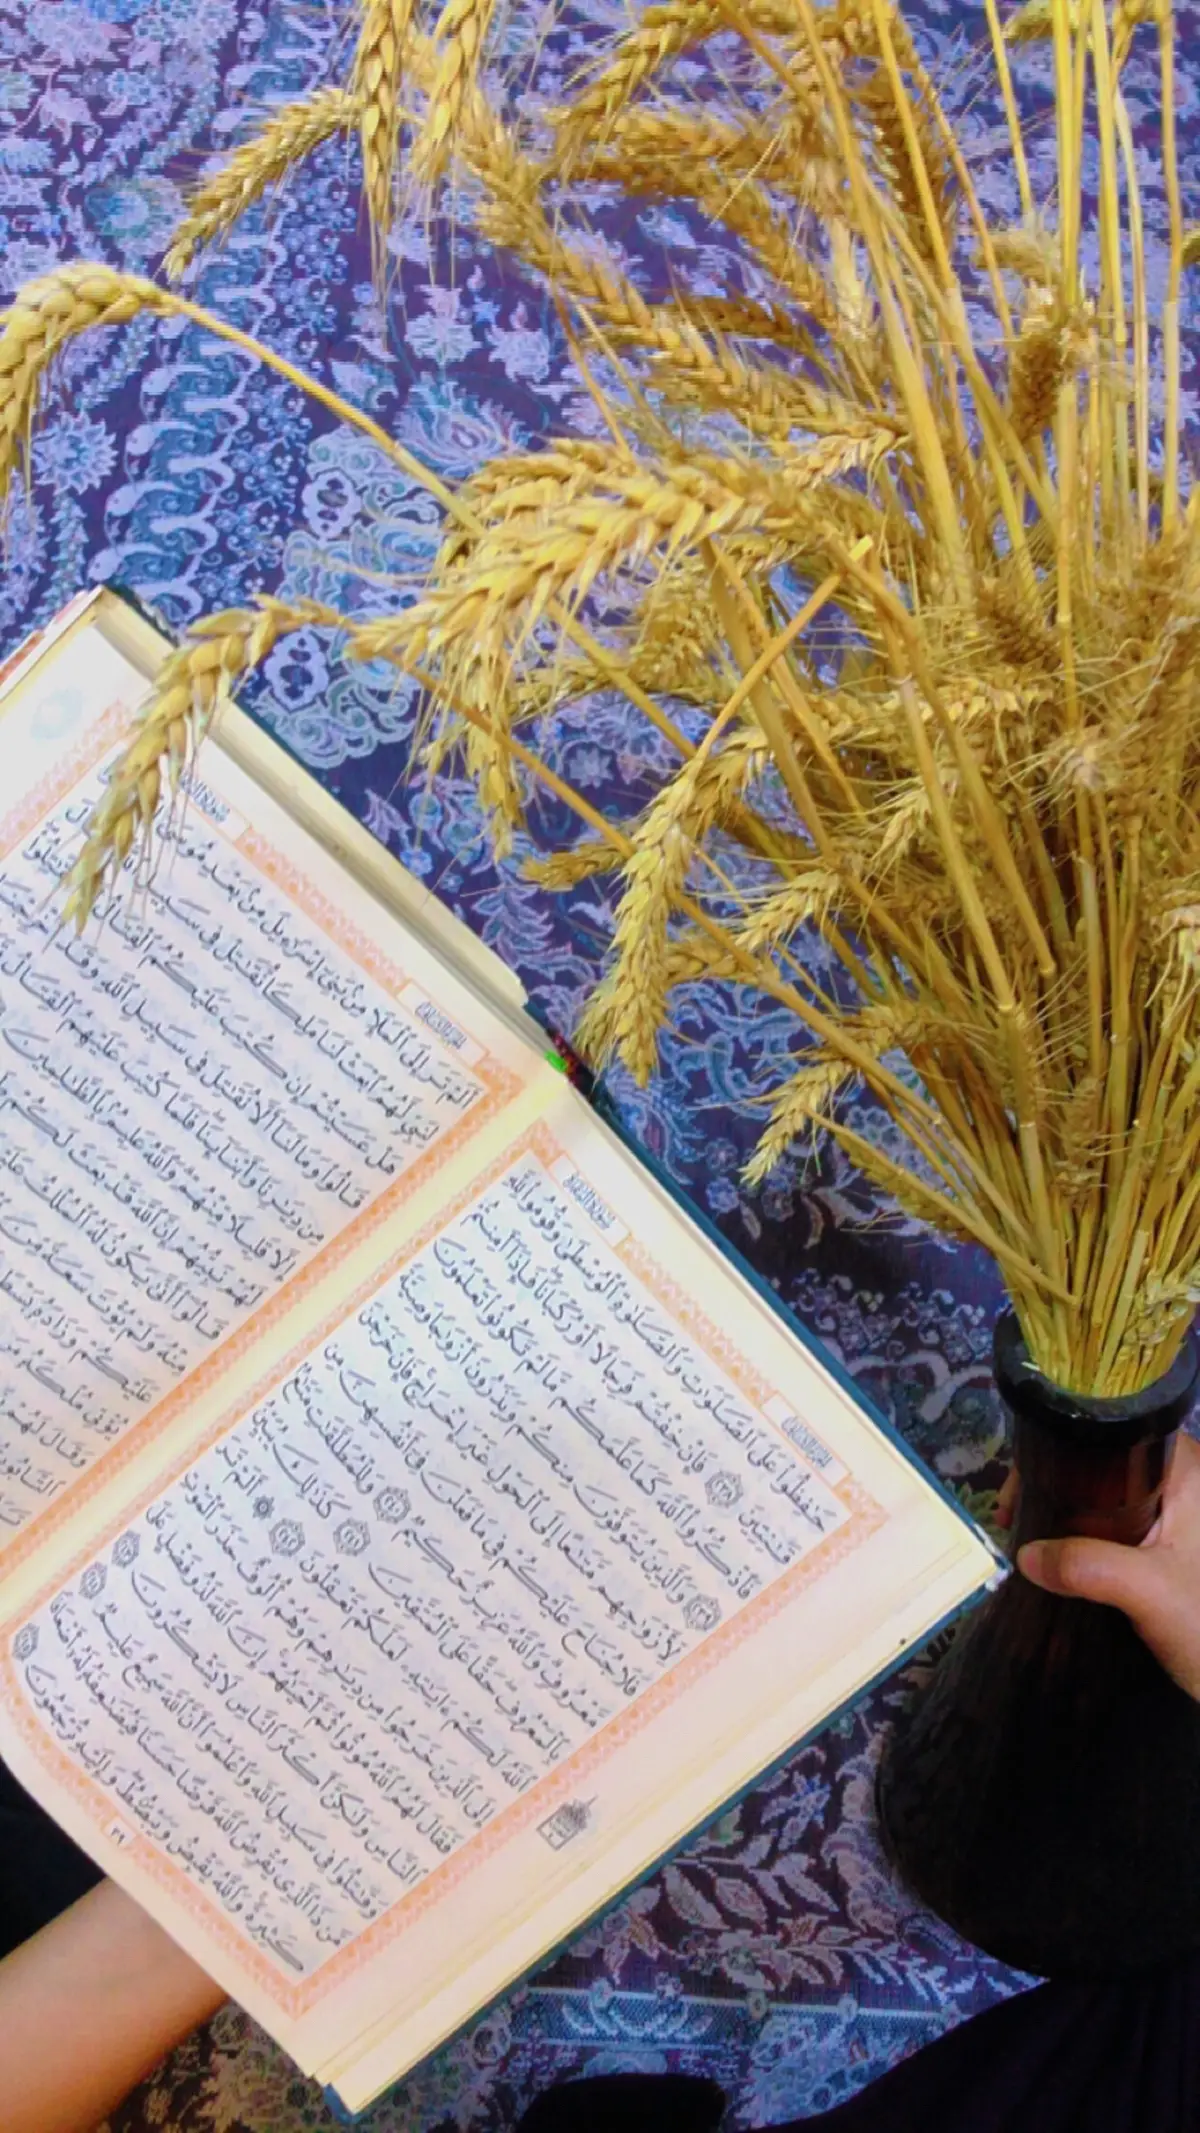 سُورَةُ البَقَرَةِ
الجُزْءُ الثَّانِي
حَٰفِظُوا۟ عَلَى ٱلصَّلَوَٰتِ وَٱلصَّلَوٰةِ ٱلْوُسْطَىٰ وَقُومُوا۟ لِلَّهِ
قَٰنِتِينَ ٢٣٨ فَإِنْ خِفْتُمْ فَرِجَالًا أَوْ رُكْبَانًا ۖ فَإِذَآ أَمِنتُمْ
فَٱذْكُرُوا۟ ٱللَّهَ كَمَا عَلَّمَكُم مَّا لَمْ تَكُونُوا۟ تَعْلَمُونَ
٢٣٩ وَٱلَّذِينَ يُتَوَفَّوْنَ مِنكُمْ وَيَذَرُونَ أَزْوَٰجًا وَصِيَّةً
لِّأَزْوَٰجِهِم مَّتَٰعًا إِلَى ٱلْحَوْلِ غَيْرَ إِخْرَاجٍ ۚ فَإِنْ خَرَجْنَ
فَلَا جُنَاحَ عَلَيْكُمْ فِى مَا فَعَلْنَ فِىٓ أَنفُسِهِنَّ مِن
مَّعْرُوفٍ ۗ وَٱللَّهُ عَزِيزٌ حَكِيمٌ ٢٤٠ وَلِلْمُطَلَّقَٰتِ مَتَٰعٌۢ
بِٱلْمَعْرُوفِ ۖ حَقًّا عَلَى ٱلْمُتَّقِينَ ٢٤١ كَذَٰلِكَ يُبَيِّنُ
ٱللَّهُ لَكُمْ ءَايَٰتِهِۦ لَعَلَّكُمْ تَعْقِلُونَ ٢٤٢ ۞ أَلَمْ تَرَ
إِلَى ٱلَّذِينَ خَرَجُوا۟ مِن دِيَٰرِهِمْ وَهُمْ أُلُوفٌ حَذَرَ ٱلْمَوْتِ
فَقَالَ لَهُمُ ٱللَّهُ مُوتُوا۟ ثُمَّ أَحْيَٰهُمْ ۚ إِنَّ ٱللَّهَ لَذُو فَضْلٍ عَلَى
ٱلنَّاسِ وَلَٰكِنَّ أَكْثَرَ ٱلنَّاسِ لَا يَشْكُرُونَ ٢٤٣
وَقَٰتِلُوا۟ فِى سَبِيلِ ٱللَّهِ وَٱعْلَمُوٓا۟ أَنَّ ٱللَّهَ سَمِيعٌ عَلِيمٌ ٢٤٤
مَّن ذَا ٱلَّذِى يُقْرِضُ ٱللَّهَ قَرْضًا حَسَنًا فَيُضَٰعِفَهُۥ لَهُۥٓ أَضْعَافًا
كَثِيرَةً ۚ وَٱللَّهُ يَقْبِضُ وَيَبْصُۜطُ وَإِلَيْهِ تُرْجَعُونَ ٢٤٥
٣٩
الجُزْءُ الثَّانِي
سُورَةُ البَقَرَةِ
أَلَمْ تَرَ إِلَى ٱلْمَلَإِ مِنۢ بَنِىٓ إِسْرَٰٓءِيلَ مِنۢ بَعْدِ مُوسَىٰٓ
لِنَبِىٍّ لَّهُمُ ٱبْعَثْ لَنَا مَلِكًا نُّقَٰتِلْ فِى سَبِيلِ
هَلْ عَسَيْتُمْ إِن كُتِبَ عَلَيْكُمُ ٱلْقِتَالُ تُقَٰتِلُوا۟
قَالُوا۟ وَمَا لَنَآ أَلَّا نُقَٰتِلَ فِى سَبِيلِ ٱللَّهِ وَقَدْ أُخْرِجْنَا
مِن دِيَٰرِنَا وَأَبْنَآئِنَا ۖ فَلَمَّا كُتِبَ عَلَيْهِمُ ٱلْقِتَالُ
إِلَّا قَلِيلًا مِّنْهُمْ ۗ وَٱللَّهُ عَلِيمٌۢ بِٱلظَّٰلِمِينَ
لَهُمْ نَبِيُّهُمْ إِنَّ ٱللَّهَ قَدْ بَعَثَ لَكُمْ
قَالُوٓا۟ أَنَّىٰ يَكُونُ لَهُ ٱلْمُلْكُ عَلَيْنَا
مِنْهُ وَلَمْ يُؤْتَ سَعَةً مِّنَ
عَلَيْكُمْ وَزَادَهُۥ بَسْطَةً
يُؤْتِى مُلْكَهُۥ مَن
وَقَالَ لَهُمْ
ٱلتَّابُوتُ